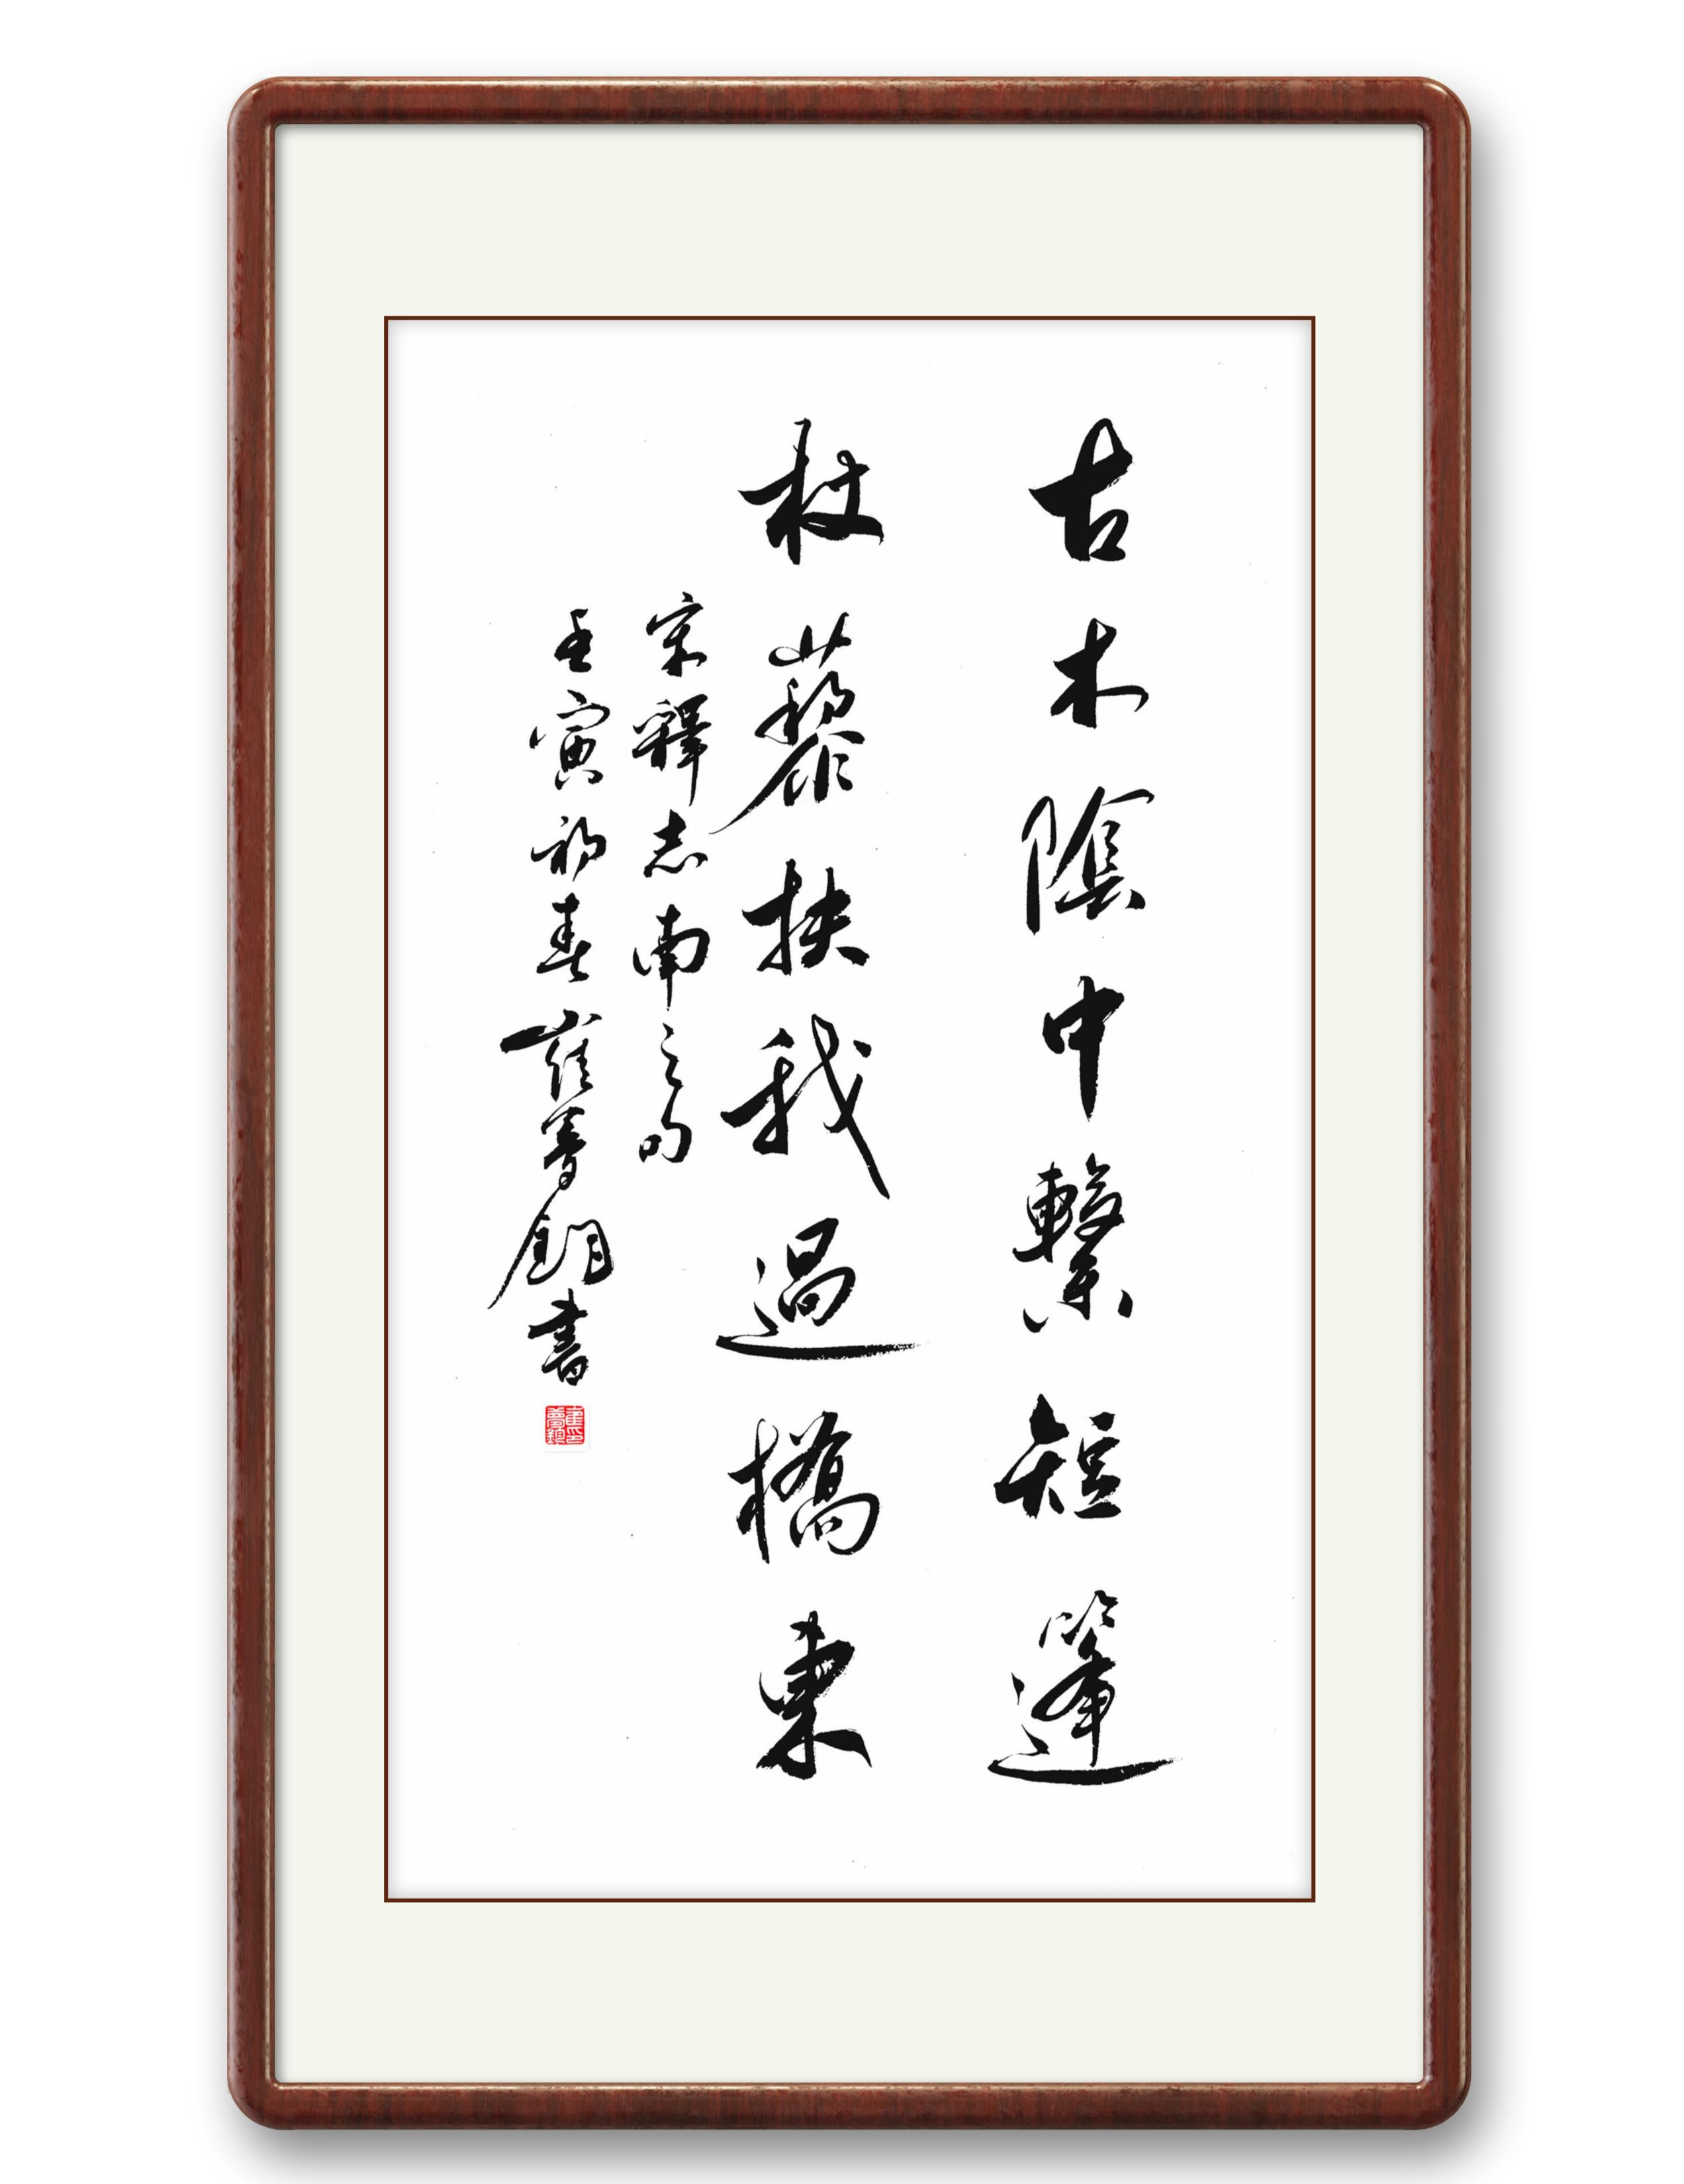 古木陰中繫短篷
杖藜扶我過橋東
宋釋志南之句
壬寅初春崔夢鋇書